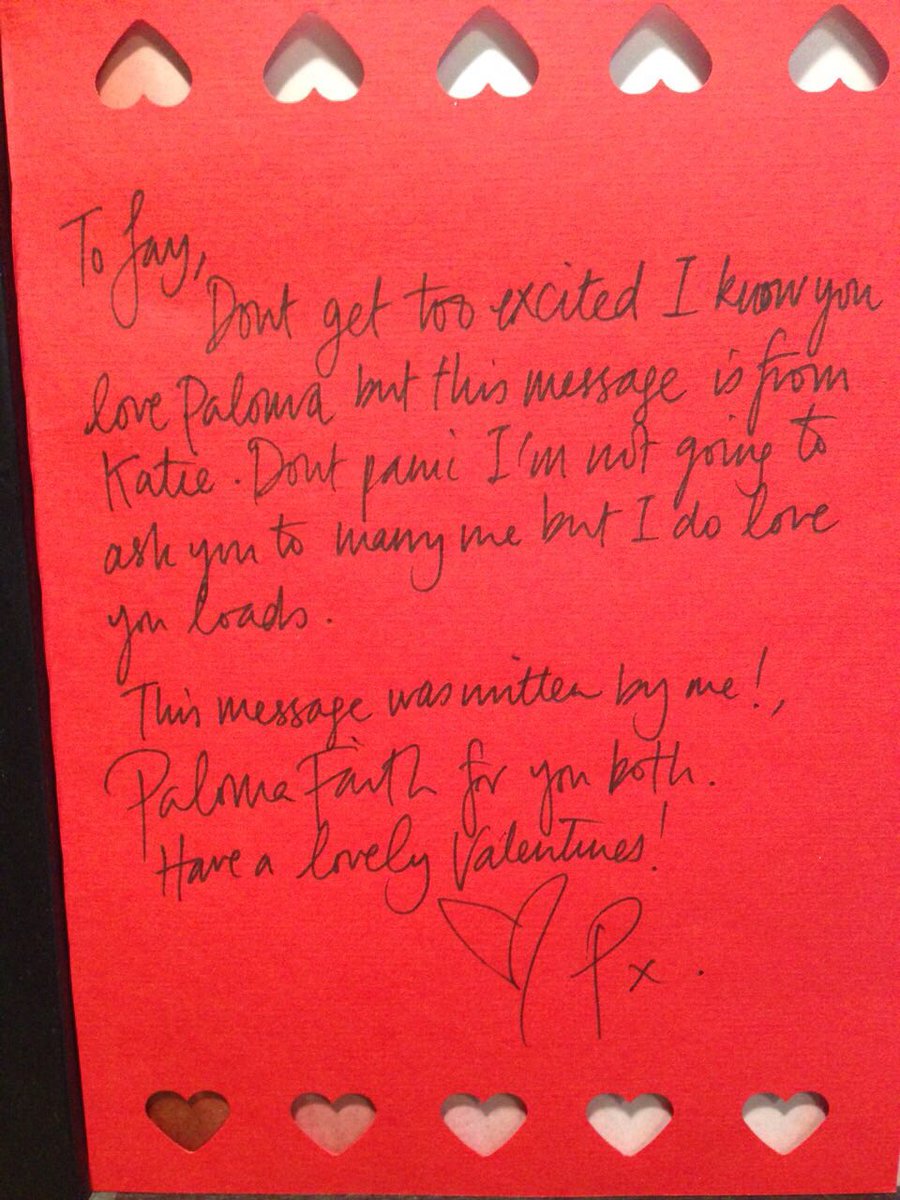 To Jay,
Dont get too excited I know you
love Paloma but this message is from
Katie. Dont panic I'm not going to
ask you to marry me but I do love
you loads.
This message was written by me!,
Paloma Faith for you both.
Have a lovely Valentines!
Px.